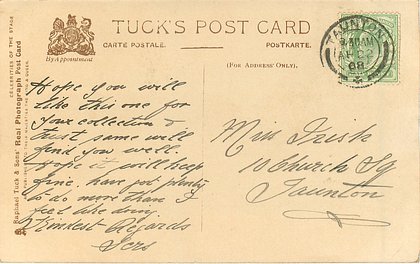 TUCK'S POST CARD
CARTE POSTALE.
POSTKARTE.
By Appointment
(FOR ADDRESS ONLY).
CELEBRITIES OF THE STAGE
Raphael Tuck & Sons' Real Photograph Post Card
TAUNTON
AM
08
Hope you will
like this one for
your collection &
trust same will
find you well.
Hope it will keep
fine, have got plenty
to do more than I
feel like doing
Kindest Regards
Miss Irish
10 Church Sq
Taunton